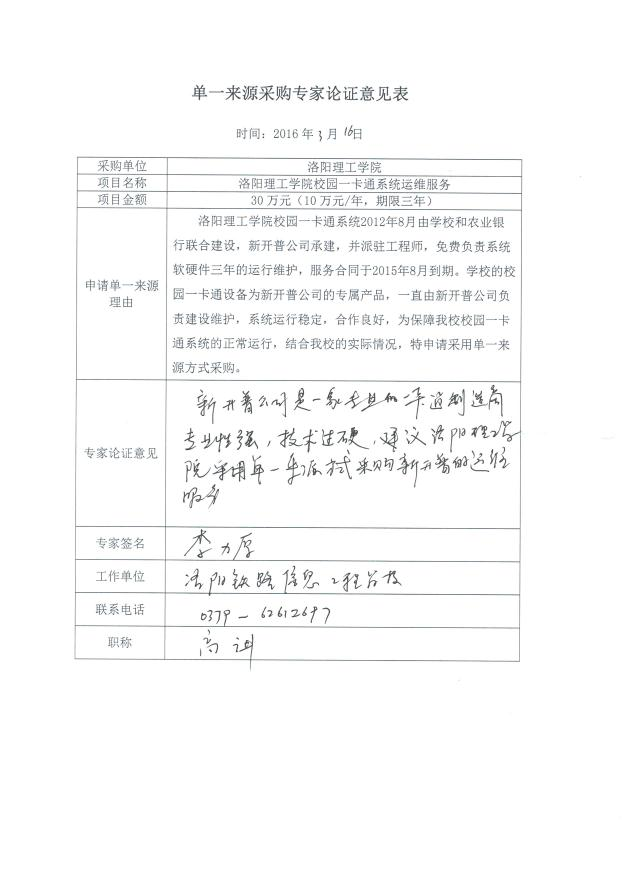 单一来源采购专家论证意见表
时间：2016年3月16日
采购单位 洛阳理工学院
项目名称 洛阳理工学院校园一卡通系统运维服务
项目金额 30万元（10万元/年，期限三年）
申请单一来源
理由
洛阳理工学院校园一卡通系统2012年8月由学校和农业银
行联合建设，新开普公司承建，并派驻工程师，免费负责系统
软硬件三年的运行维护，服务合同于2015年8月到期。学校的校
园一卡通设备为新开普公司的专属产品，一直由新开普公司负
责建设维护，系统运行稳定，合作良好，为保障我校校园一卡
通系统的正常运行，结合我校的实际情况，特申请采用单一来
源方式采购。
专家论证意见
新开普公司是一家专业的一卡通制造商
专业性强，技术过硬，建议洛阳理工学
院采用单一来源方式采购新开普的运维
服务
专家签名 李力厚
工作单位 洛阳铁路信息工程
联系电话 0379-62612697
职称 高讲